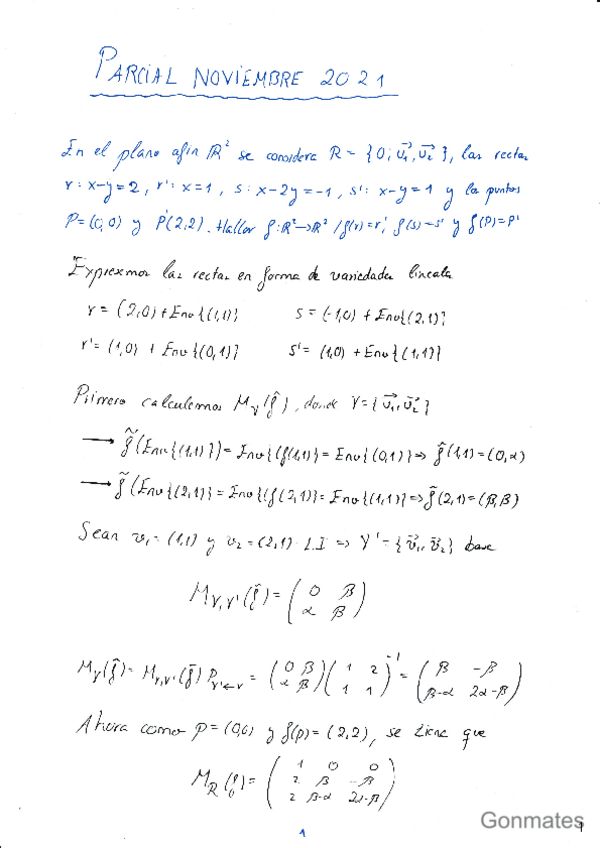 PARCIAL NOVIEMBRE 2021
En el plano afín ℝ² se considera R = {O; v⃗₁, v⃗₂}, las rectas
r: x-y=2, r': x=1, s: x-2y=-1, s': x-y=1 y los puntos
P=(0,0) y P'(2,2). Hallar f: ℝ²→ℝ² / f(r)=r', f(s)=s' y f(P)=P'
Expresemos las rectas en forma de variedades lineales
r = (2,0) + Env{(1,1)} s = (-1,0) + Env{(2,1)}
r' = (1,0) + Env{(0,1)} s' = (1,0) + Env{(1,1)}
Primero calculemos M_γ(f̂), donde γ = {v⃗₁, v⃗₂}
→ f̃(Env{(1,1)}) = Env{(f(1,1)} = Env{(0,1)} ⇒ f̂(1,1) = (0,α)
→ f̃(Env{(2,1)} = Env{(f(2,1)} = Env{(1,1)} ⇒ f̂(2,1) = (β,β)
Sean v₁ = (1,1) y v₂ = (2,1) L.I ⇒ γ' = {v⃗₁, v⃗₂} base
M_γ,γ'(f̂) = ( 0 β
α β )
M_γ(f̂) = M_γ,γ'(f̂) P_γ'←γ = ( 0 β ; α β ) ( 1 2 ; 1 1 )⁻¹ = ( β -β ; β-α 2α-β )
Ahora como P = (0,0) y f(P) = (2,2), se tiene que
M_R(f) = ( 1 0 0
2 β -β
2 β-α 2α-β )
1
Gonmates